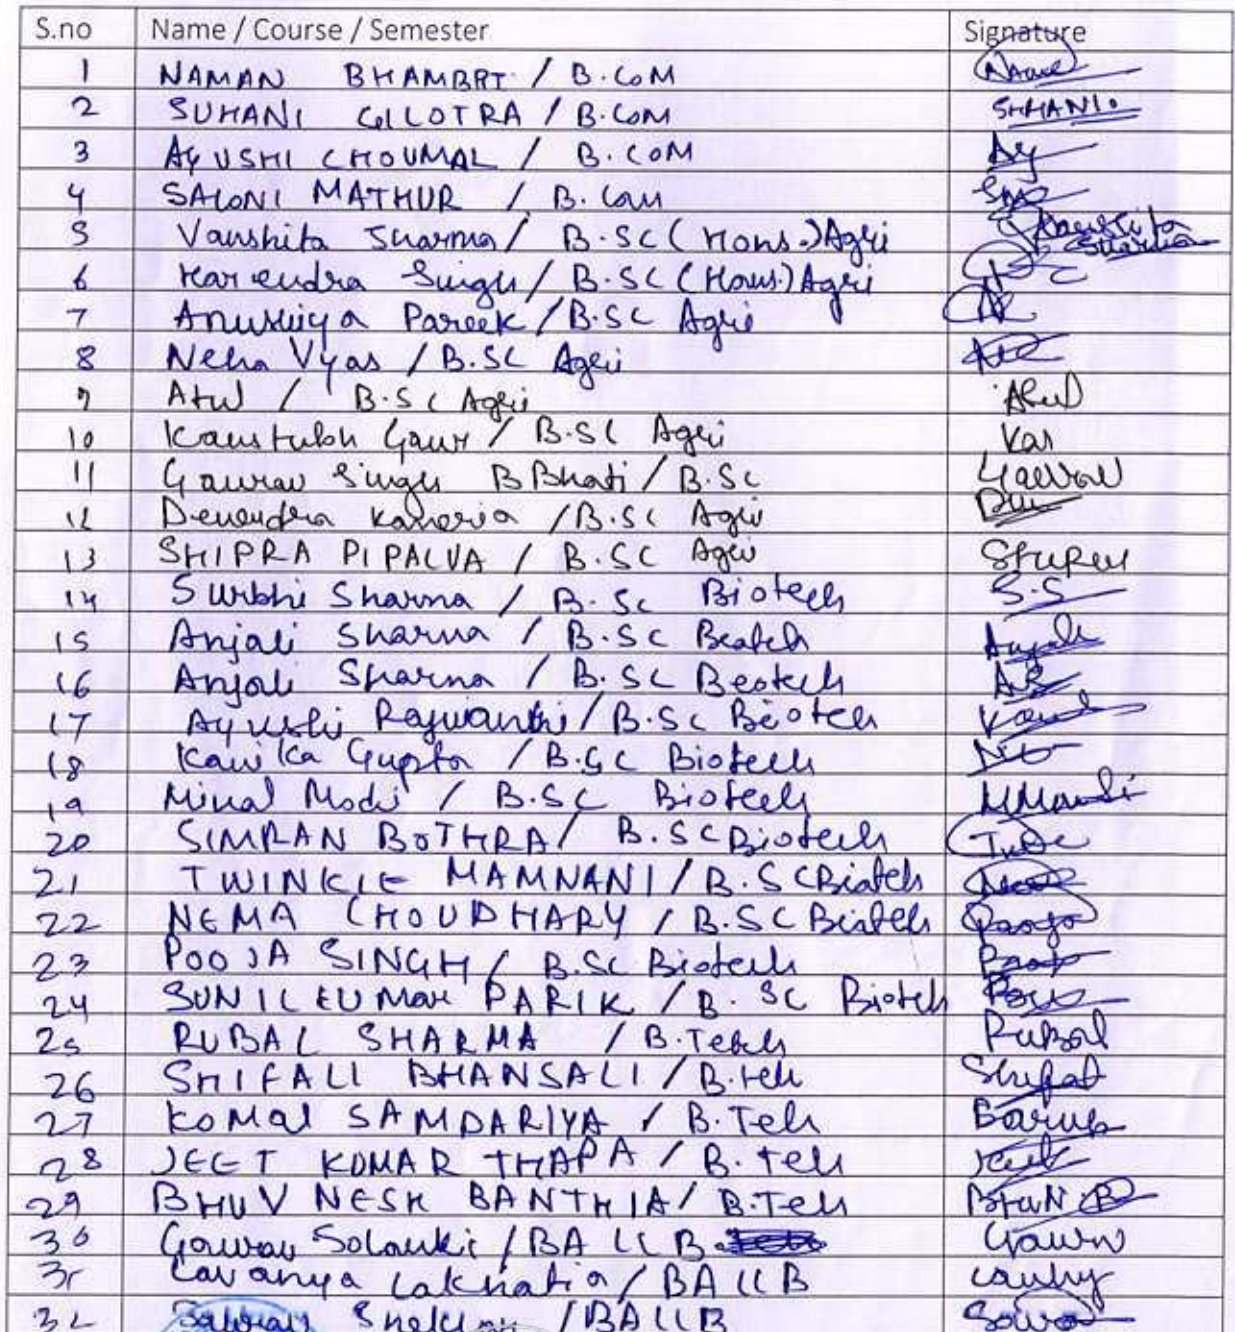 S.no Name / Course / Semester Signature
1 NAMAN BHAMBRI / B.COM
2 SUHANI GILLOTRA / B.COM SHHANI.
3 AYUSHI CHOUMAL / B.COM Ay
4 SALONI MATHUR / B.Com
5 Vanshita Sharma / B.SC (Hons.) Agri Vanshita Sharma
6 Harendra Singh / B.SC (Hons.) Agri
7 Anushiya Pareek / B.SC Agri
8 Neha Vyas / B.SC Agri
9 Atul / B.SC Agri Atul
10 Kaustubh Gaur / B.SC Agri Kas
11 Gaurav Singh B Bhati / B.SC Gaurav
12 Devendra Kaneria / B.SC Agri
13 SHIPRA PIPALVA / B.SC Agri
14 Surbhi Sharma / B.Sc Biotech S.S
15 Anjali Sharma / B.Sc Beatch Anjali
16 Anjali Sharma / B.SC Beotech AS
17 Ayushi Rajwanshi / B.Sc Biotech
18 Kanika Gupta / B.SC Biotech
19 Minal Modi / B.SC Biotech
20 SIMRAN BOTHRA / B.SC Biotech
21 TWINKLE MAMNANI / B.SC Biatch
22 NEMA CHOUDHARY / B.SC Biatch Pooja
23 POOJA SINGH / B.SC Biotech
24 SUNIL KUMAR PARIK / B.SC Biotch
25 RUBAL SHARMA / B.Tech Rubal
26 SHIFALI BHANSALI / B.teh Shifat
27 KOMAL SAMDARIYA / B.Teh
28 JEET KUMAR THAPA / B.teh
29 BHUV NESH BANTHIA / B.Teh BHUN B
30 Gaurav Solanki / BA LLB Gaurv
31 Lavanya Lakhatia / BA LLB
32 / BA LLB